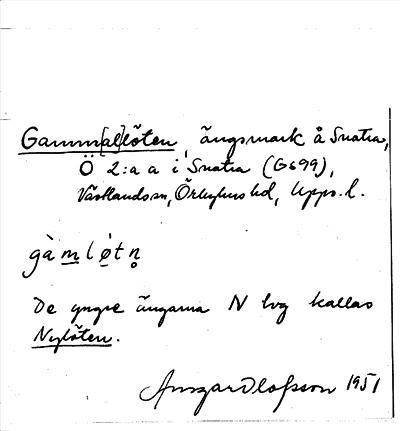 Gamm[al]löten, ängsmark å Snatra,
Ö 2:a a i Snatra (Gs99),
Västlands sn, Örbyhus hd, Upps. l.
gàm̲lǿtn̥
De yngre ängarna N lvg kallas
Nylöten.
Ansgar Olofsson 1951